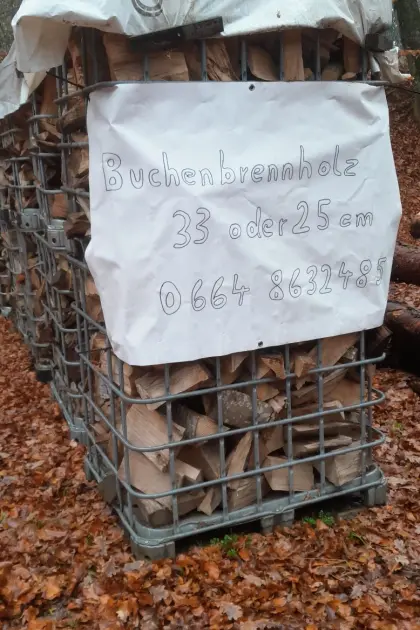 Buchenbrennholz
33 oder 25 cm
0664 8632485